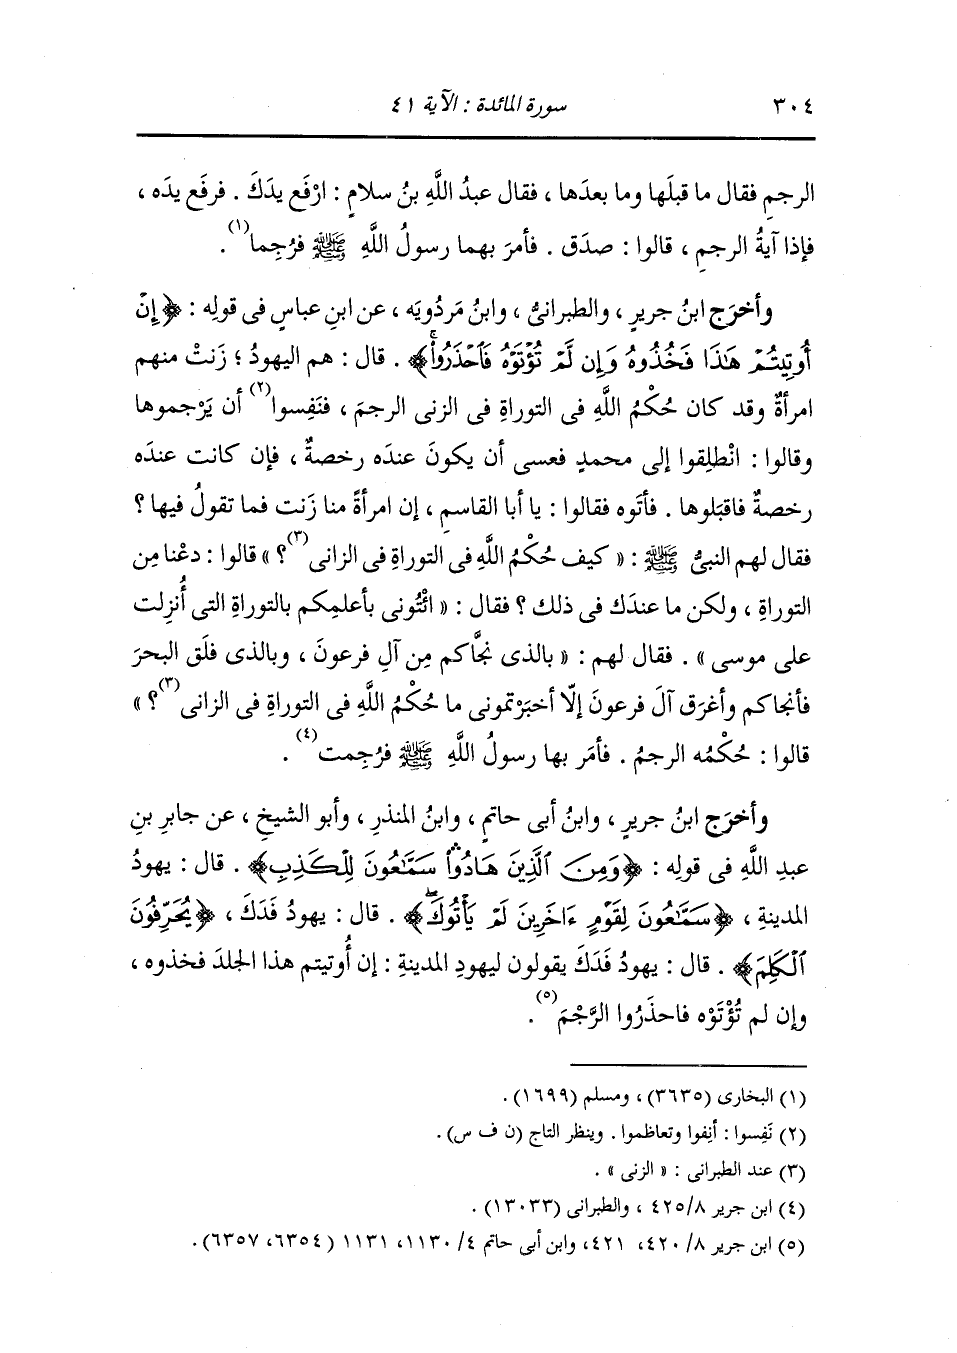 ٣٠٤ سورة المائدة : الآية ٤١
الرجمِ فقال ما قبلَها وما بعدَها ، فقال عبدُ اللَّهِ بنُ سلامٍ : ارْفَع يدَكَ . فرفَع يدَه ،
فإذا آيةُ الرجمِ ، قالوا : صدَق . فأمرَ بهما رسولُ اللَّهِ ﷺ فرُجِما(١) .
وأخرَج ابنُ جريرٍ ، والطبرانىُّ ، وابنُ مَردُويَه ، عن ابنِ عباسٍ فى قولِه : ﴿إِنْ
أُوتِيتُمْ هَٰذَا فَخُذُوهُ وَإِن لَّمْ تُؤْتَوْهُ فَٱحْذَرُوا۟ۚ﴾ . قال : هم اليهودُ ؛ زَنتْ منهم
امرأةٌ وقد كان حُكْمُ اللَّهِ فى التوراةِ فى الزنى الرجمَ ، فنَفِسوا(٢) أن يَرْجموها
وقالوا : انْطلِقوا إلى محمدٍ فعسى أن يكونَ عندَه رخصةٌ ، فإن كانت عندَه
رخصةٌ فاقبَلوها . فأتَوه فقالوا : يا أبا القاسمِ ، إن امرأةً منا زَنت فما تقولُ فيها ؟
فقال لهم النبىُّ ﷺ : « كيف حُكْمُ اللَّهِ فى التوراةِ فى الزانى(٣) ؟ » قالوا : دعْنا مِن
التوراةِ ، ولكن ما عندَك فى ذلك ؟ فقال : « ائْتُونى بأعلمِكم بالتوراةِ التى أُنزِلت
على موسى » . فقال لهم : « بالذى نجَّاكم مِن آلِ فرعونَ ، وبالذى فلَق البحرَ
فأنجاكم وأغرَق آلَ فرعونَ إلّا أخبَرْتمونى ما حُكْمُ اللَّهِ فى التوراةِ فى الزانى(٣) ؟ »
قالوا : حُكْمُه الرجمُ . فأمَر بها رسولُ اللَّهِ ﷺ فرُجِمت(٤) .
وأخرَج ابنُ جريرٍ ، وابنُ أبى حاتمٍ ، وابنُ المنذرِ ، وأبو الشيخِ ، عن جابرِ بنِ
عبدِ اللَّهِ فى قولِه : ﴿وَمِنَ ٱلَّذِينَ هَادُوا۟ۛ سَمَّٰعُونَ لِلْكَذِبِ﴾ . قال : يهودُ
المدينةِ ، ﴿سَمَّٰعُونَ لِقَوْمٍ ءَاخَرِينَ لَمْ يَأْتُوكَۖ﴾ . قال : يهودُ فَدَكَ ، ﴿يُحَرِّفُونَ
ٱلْكَلِمَ﴾ . قال : يهودُ فَدَكَ يقولون ليهودِ المدينةِ : إن أُوتيتم هذا الجلدَ فخذوه ،
وإن لم تُؤْتَوْه فاحذَرُوا الرَّجْمَ(٥) .
(١) البخارى (٣٦٣٥) ، ومسلم (١٦٩٩) .
(٢) نَفِسوا : أنِفوا وتعاظموا . وينظر التاج (ن ف س) .
(٣) عند الطبرانى : « الزنى » .
(٤) ابن جرير ٤٢٥/٨ ، والطبرانى (١٣٠٣٣) .
(٥) ابن جرير ٤٢٠/٨، ٤٢١، وابن أبى حاتم ٤/ ١١٣٠، ١١٣١ (٦٣٥٤، ٦٣٥٧) .